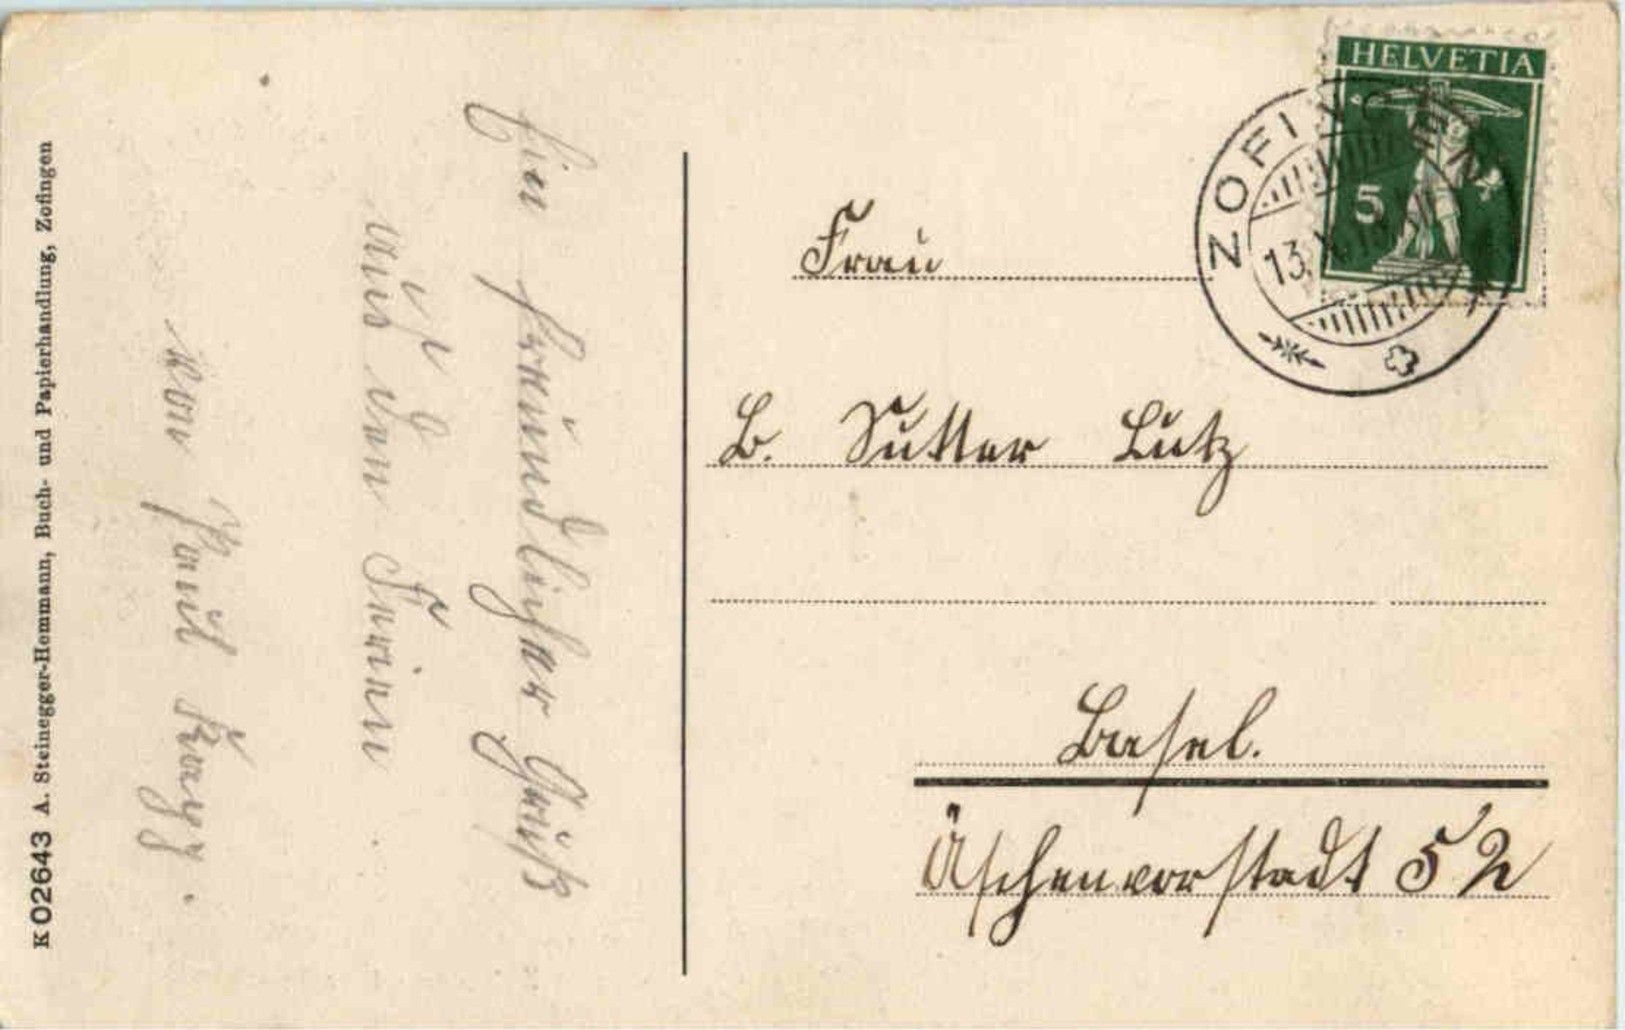 K 02643 A. Steinegger-Hemmann, Buch- und Papierhandlung, Zofingen
Ein freundlicher Gruß
aus den Ferien
von Paul
HELVETIA
5
ZOFINGEN
13. X.
Frau
B. Sutter Lutz
Basel.
Äschenvorstadt 52